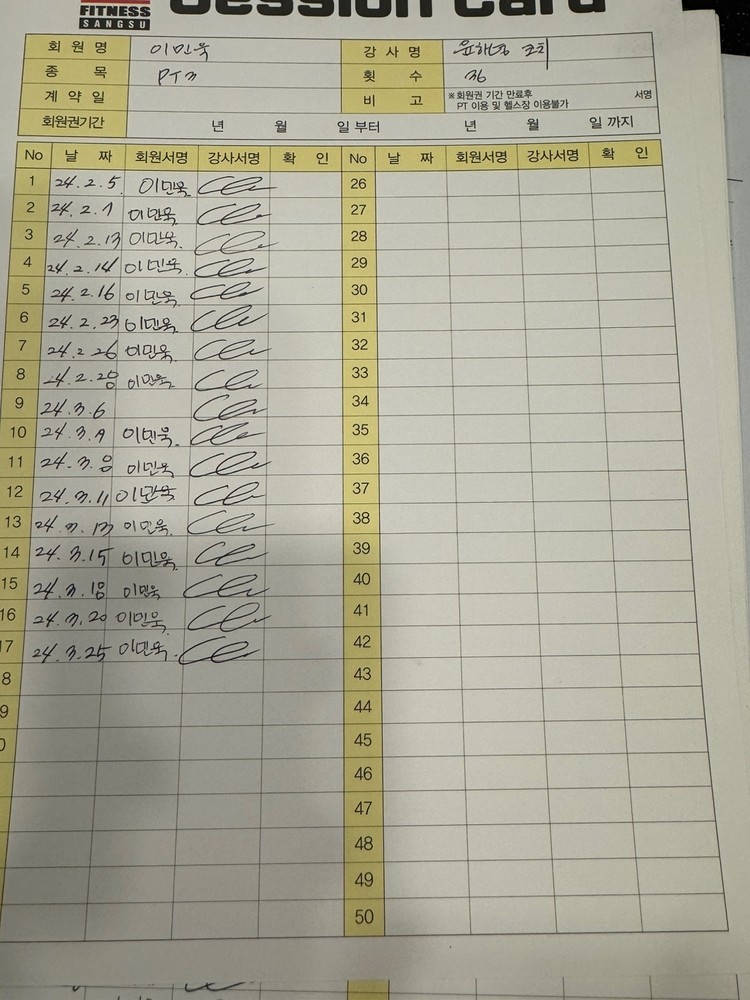 FITNESS
SANGSU
Session Card
회 원 명 이민욱 강 사 명
종 목 PT 횟 수 36
계 약 일 비 고 ※회원권 기간 만료후 PT 이용 및 헬스장 이용불가 서명
회원권기간 년 월 일 부터 년 월 일 까지
No 날 짜 회원서명 강사서명 확 인 No 날 짜 회원서명 강사서명 확 인
1 24.2.5. 이민욱 26
2 24.2. 이민욱 27
3 24.2.13 이민욱. 28
4 24.2.14 이민욱. 29
5 24.2.16 이민욱 30
6 24.2.23 이민욱. 31
7 24.2.26 이민욱. 32
8 24.2.28 이민욱. 33
9 24.3.6 34
10 24.3. 이민욱. 35
11 24.3.8 이민욱 36
12 24.3.11 이민욱 37
13 24.3.13 이민욱. 38
14 24.3.15 이민욱. 39
15 24.3.18 이민욱 40
16 24.3.20 이민욱. 41
17 24.3.25 이민욱. 42
8 43
9 44
0 45
46
47
48
49
50